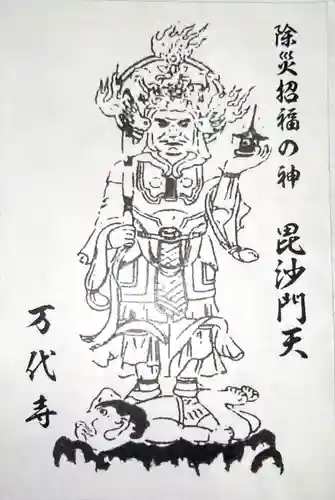 除災招福の神 毘沙門天
万代寺